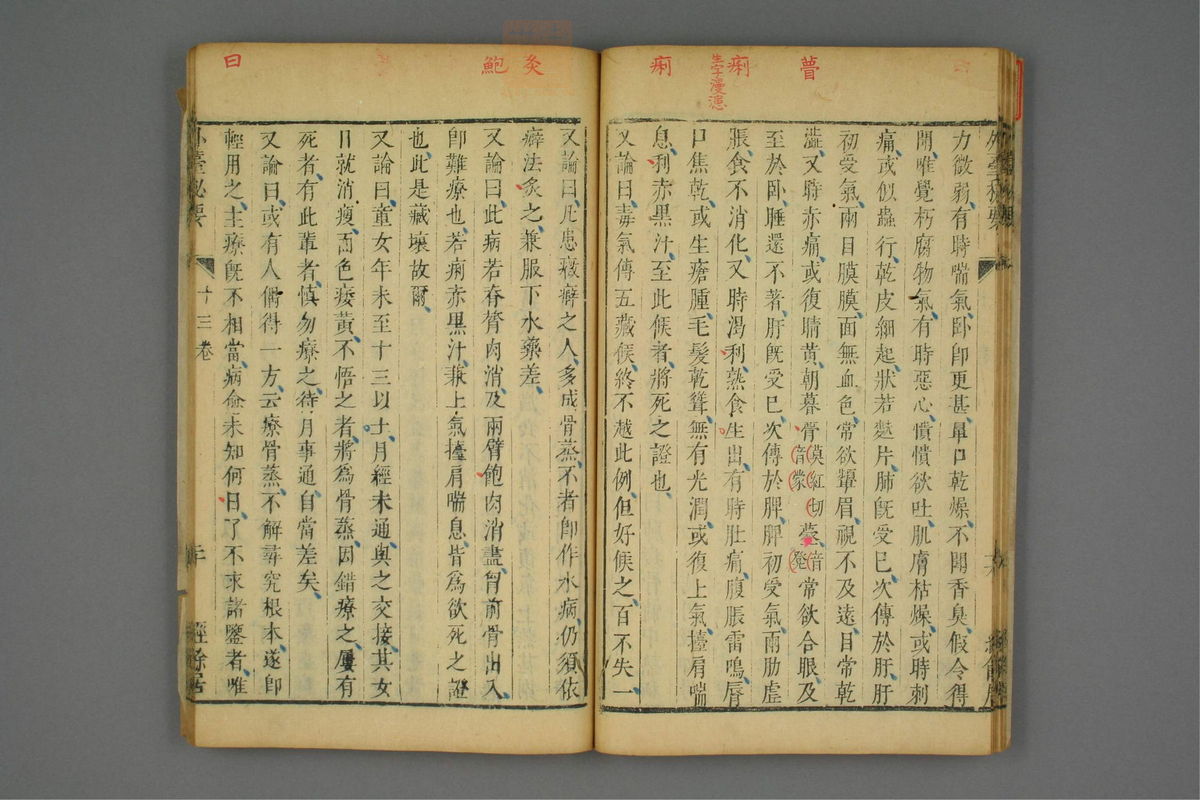 瞢
痢
生字漫漶
痢
外臺秘要
力微弱有時喘氣臥卽更甚鼻口乾燥不聞香臭假令得
聞唯覺朽腐物氣有時惡心憒憒欲吐肌膚枯燥或時刺
痛或似蟲行乾皮細起狀若麩片肺旣受已次傳於肝肝
初受氣兩目膜膜面無血色常欲顰眉視不及遠目常乾
澁又時赤痛或復睛黃朝暮
莫紅切
音蒙
音
常欲合眼及
至於臥睡還不著肝旣受已次傳於脾脾初受氣兩肋虛
脹食不消化又時渴利熟食生出有時肚痛腹脹雷鳴脣
口焦乾或生瘡腫毛髮乾聳無有光潤或復上氣擡肩喘
息利赤黑汁至此候者將死之證也
又論曰毒氣傳五藏候終不越此例但好候之百不失一
灸
鮑
曰
又論曰凡患癥癖之人多成骨蒸不者卽作水病仍須依
癖法炙之兼服下水藥差
又論曰此病若脊膂肉消及兩臂飽肉消盡胷前骨出入
卽難療也若痢赤黑汁兼上氣擡肩喘息皆爲欲死之證
也此是藏壞故爾
又論曰童女年未至十三以上月經未通與之交接其女
日就消瘦面色痿黃不悟之者將爲骨蒸因錯療之屢有
死者有此輩者愼勿療之待月事通自當差矣
又論曰或有人偶得一方云療骨蒸不解尋究根本遂卽
輕用之主療旣不相當病愈未知何日了不求諸鑒者唯
外臺秘要
十三卷
二十
經餘居